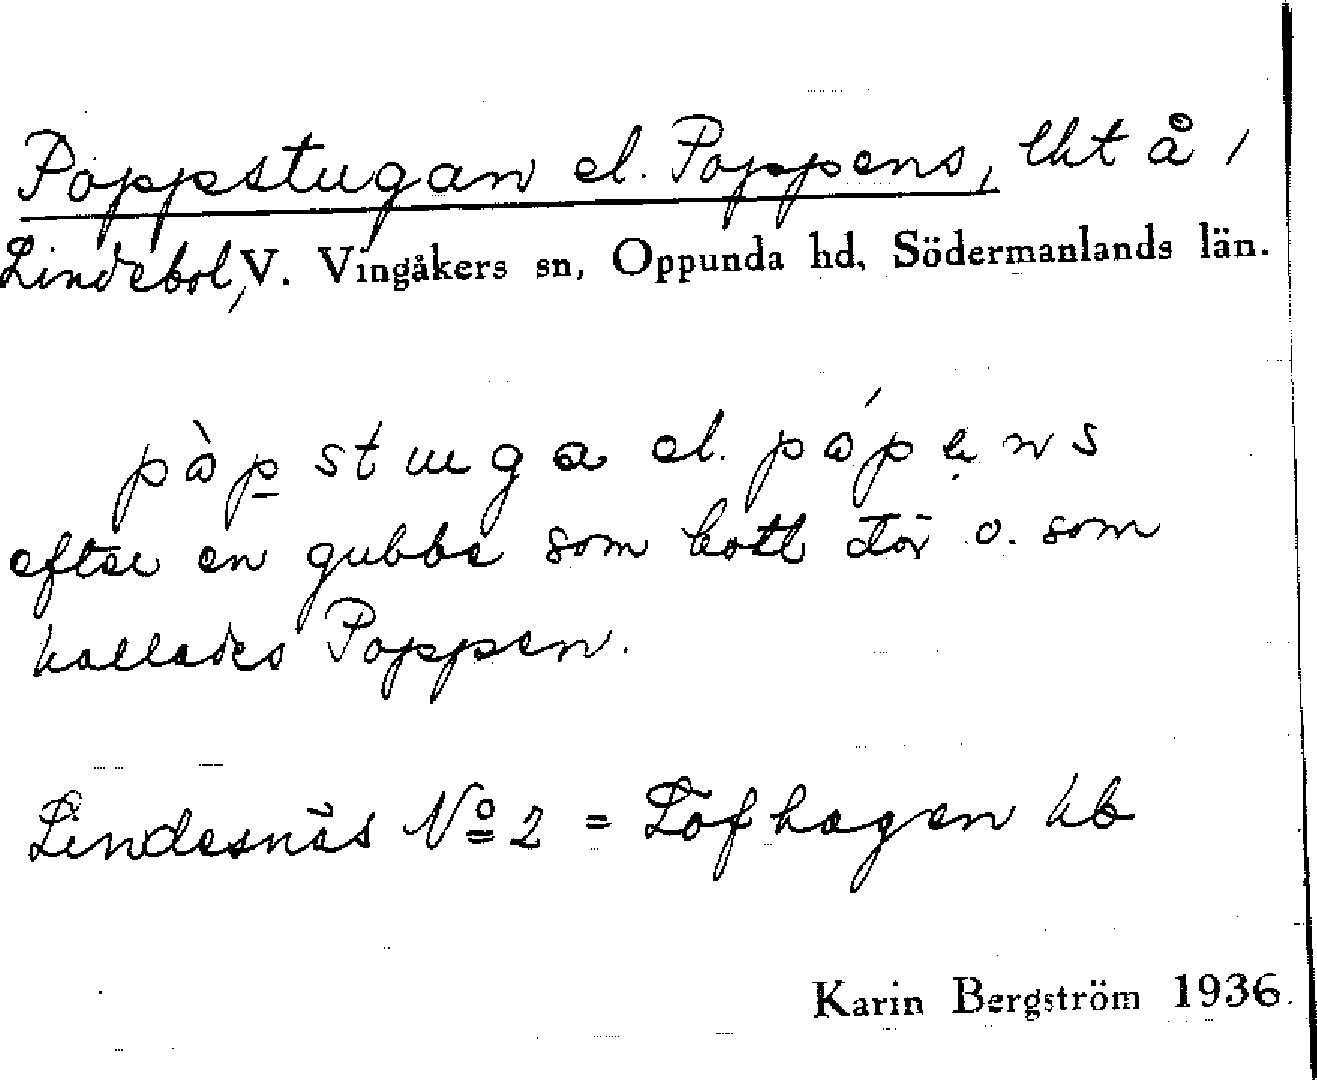 Poppstugan el. Poppens, lht å /
Lindebol, V. Vingåkers sn, Oppunda hd, Södermanlands län.
pòp̲stuga el. pópẹns
efter en gubbe som bott där o. som
kallades Poppen.
Lindesnäs Nº 2 = Löfhagen hb
Karin Bergström 1936.